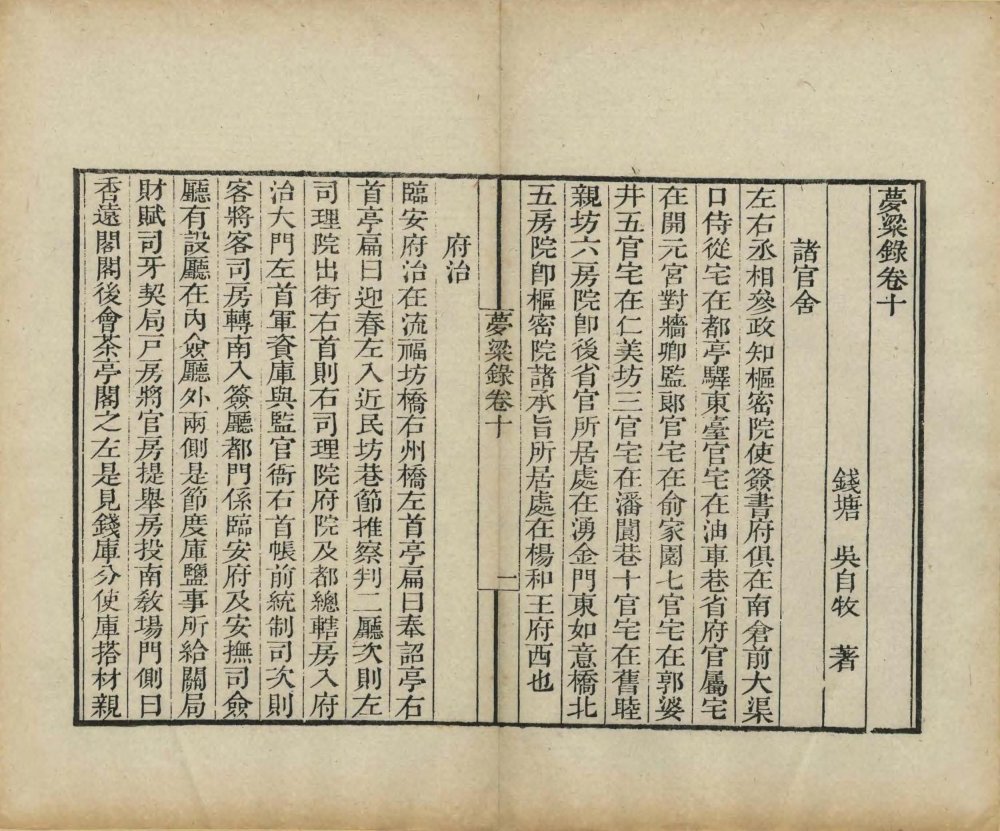 夢粱錄卷十
錢塘 吳自牧 著
諸官舍
左右丞相參政知樞密院使簽書府俱在南倉前大渠
口侍從宅在都亭驛東臺官宅在油車巷省府官屬宅
在開元宮對牆卿監郞官宅在俞家園七官宅在郭婆
井五官宅在仁美坊三官宅在潘閬巷十官宅在舊睦
親坊六房院卽後省官所居處在湧金門東如意橋北
五房院卽樞密院諸承旨所居處在楊和王府西也
夢粱錄卷十
一
府治
臨安府治在流福坊橋右州橋左首亭扁曰奉詔亭右
首亭扁曰迎春左入近民坊巷節推察判二廳次則左
司理院出街右首則右司理院府院及都總轄房入府
治大門左首軍資庫與監官衙右首帳前統制司次則
客將客司房轉南入簽廳都門係臨安府及安撫司僉
廳有設廳在內僉廳外兩側是節度庫鹽事所給關局
財賦司牙契局戸房將官房提舉房投南敎場門側曰
香遠閣閣後會茶亭閣之左是見錢庫分使庫搭材親